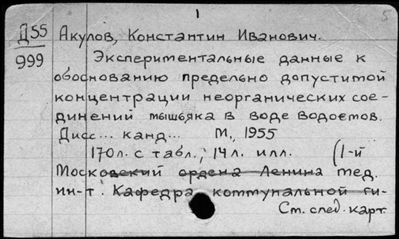 1
5
Д55
999
Акулов, Константин Иванович.
Экспериментальные данные к
обоснованию предельно допустимой
концентрации неорганических сое-
динений мышьяка в воде водоемов.
Дисс... канд... М., 1955
170 л. с табл.; 14 л. илл. (1-й
Московский ордена Ленина мед.
ин-т. Кафедра коммунальной ги-
См. след. карт